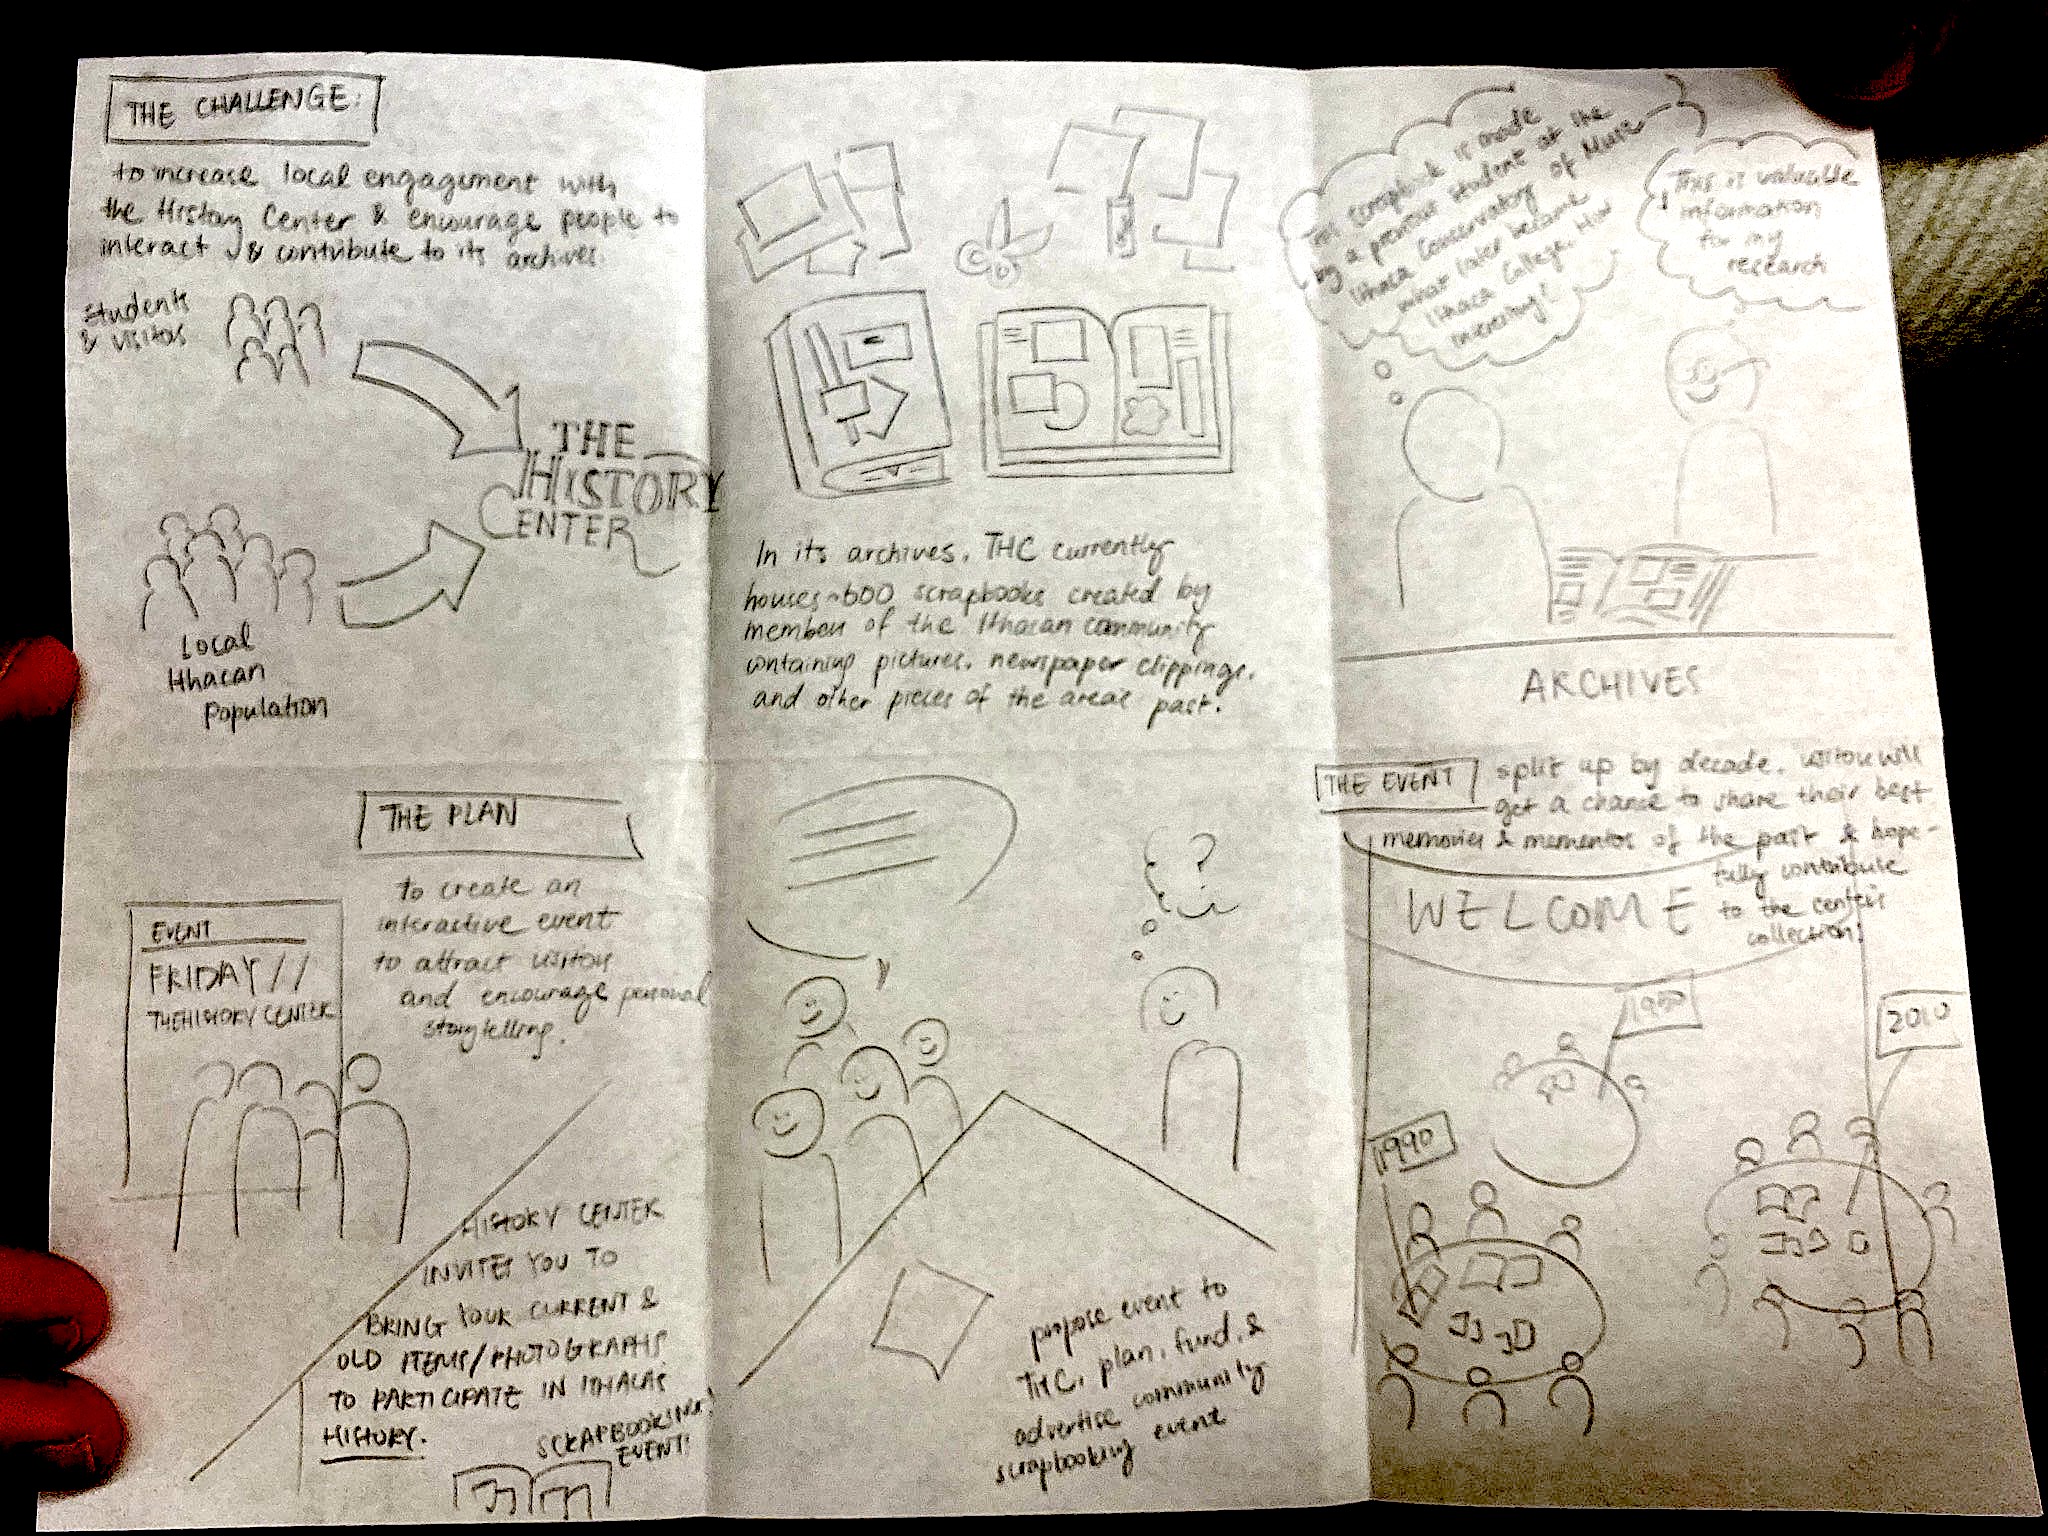 THE CHALLENGE:
to increase local engagement with
the History Center & encourage people to
interact & contribute to its archives.
Students
& visitors
THE
HISTORY
CENTER
Local
Ithacan
Population
In its archives, THC currently
houses ~600 scrapbooks created by
members of the Ithacan community
containing pictures, newspaper clippings,
and other pieces of the area's past.
This scrapbook is made
by a previous student at the
Ithaca Conservatory of Music
what later became
Ithaca College. How
interesting!
This is valuable
information
for my
research
ARCHIVES
THE PLAN
to create an
interactive event
to attract visitors
and encourage personal
storytelling.
EVENT
FRIDAY //
THE HISTORY CENTER
HISTORY CENTER
INVITES YOU TO
BRING YOUR CURRENT &
OLD ITEMS/PHOTOGRAPHS
TO PARTICIPATE IN ITHACA'S
HISTORY.
EVENT!
?
propose event to
THC, plan, fund, &
advertise community
scrapbooking event
THE EVENT
split up by decade, visitors will
get a chance to share their best
memories & mementos of the past & hope-
fully contribute
to the center's
collection!
WELCOME
2010
1990